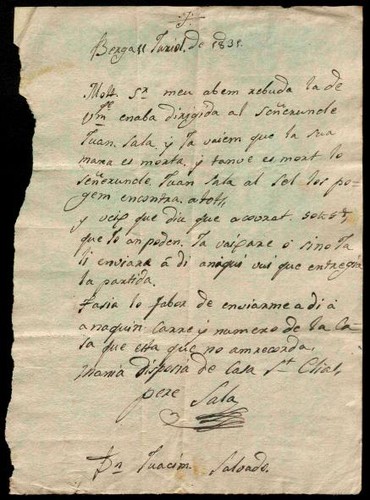 Berga 11 Juriol. de 1831.
Molt Sr meu abem rebuda la de
Vm enaba dirigida al señeruncle
Juan Sala, y Ja vaiem que la sua
mara es morta, y tanve es mort lo
señeruncle Juan Sala al Sel los po
gem encontra atots,
y veig que diu que acourat
que lo an poden. Ja o sino Ja
li enviare á di anaqui vui que entregia
la partida.
Fasia lo fabor de enviarme a di á
anaquin Carre y numero de la Ca
sa que esta que no amrecorda,
Mania disposia de Casa St Elias,
pere Sala
Dn Juacim Salvado.